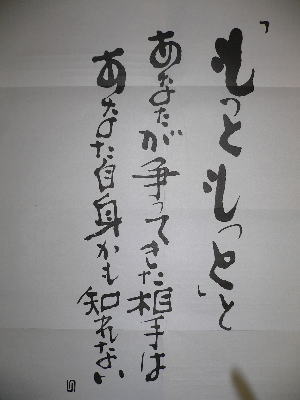 「もっともっと」と
あなたが争ってきた相手は
あなた自身かも知れない